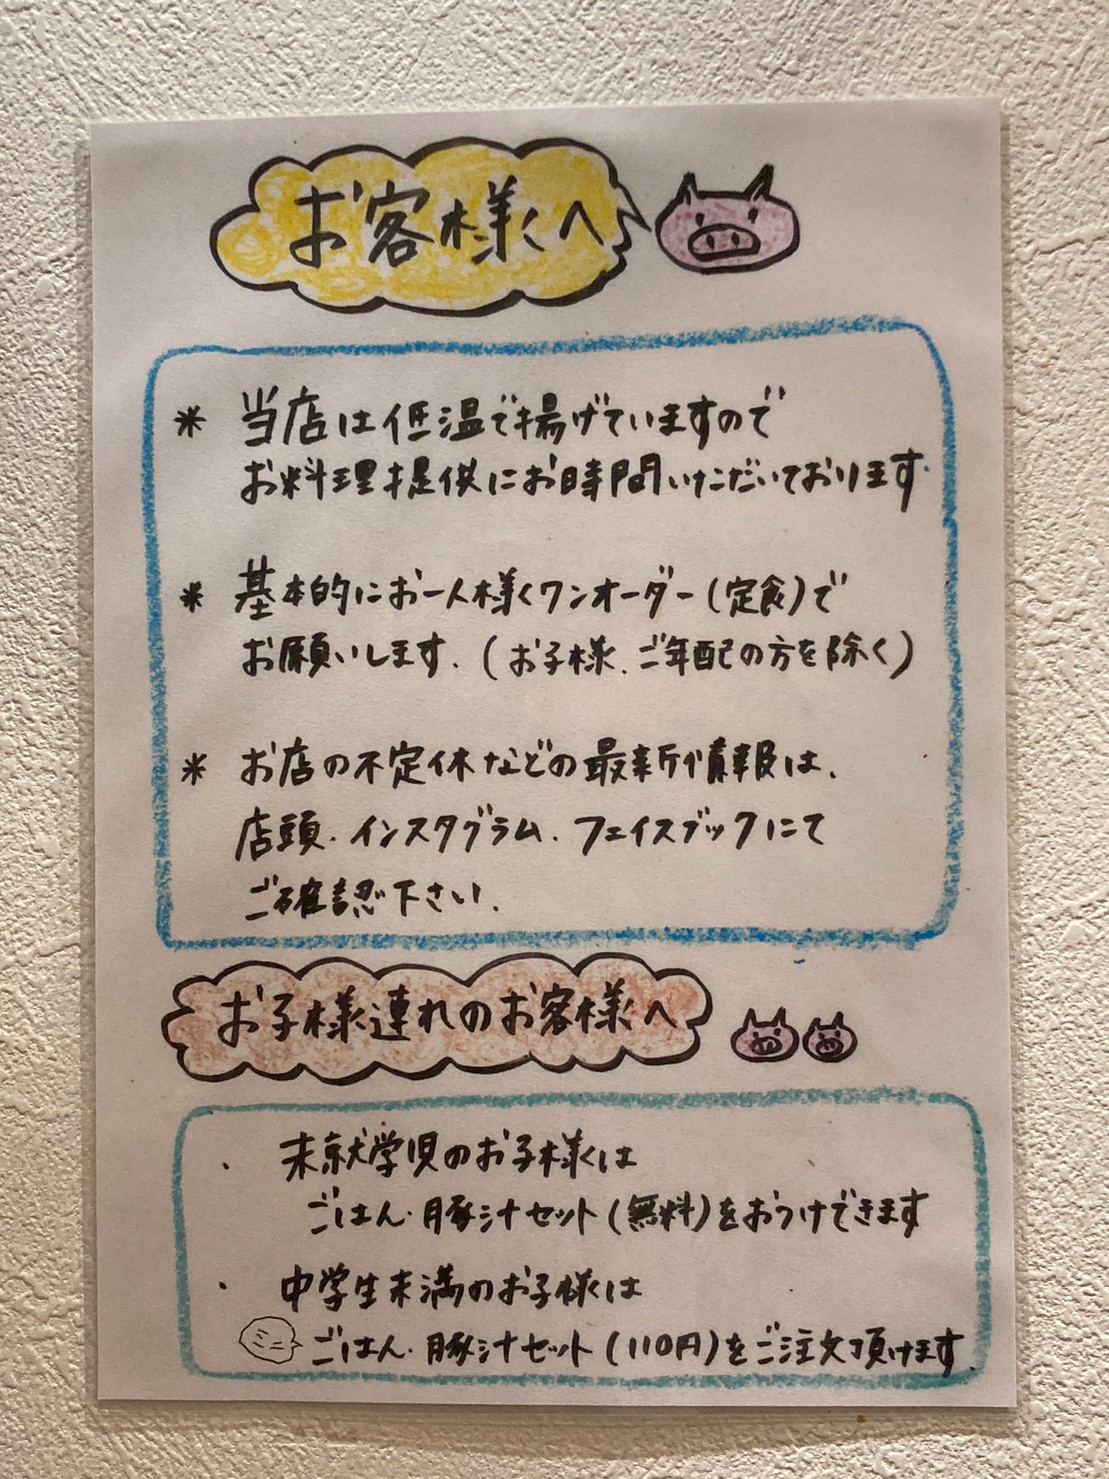 お客様へ
* 当店は低温で揚げていますので
お料理提供にお時間いただいております.
* 基本的にお一人様ワンオーダー(定食)で
お願いします.(お子様、ご年配の方を除く)
* お店の不定休などの最新情報は、
店頭.インスタグラム.フェイスブックにて
ご確認下さい.
お子様連れのお客様へ
・ 未就学児のお子様は
ごはん・豚汁セット(無料)をおつけできます
・ 中学生未満のお子様は
ミニ ごはん・豚汁セット(110円)をご注文頂けます.